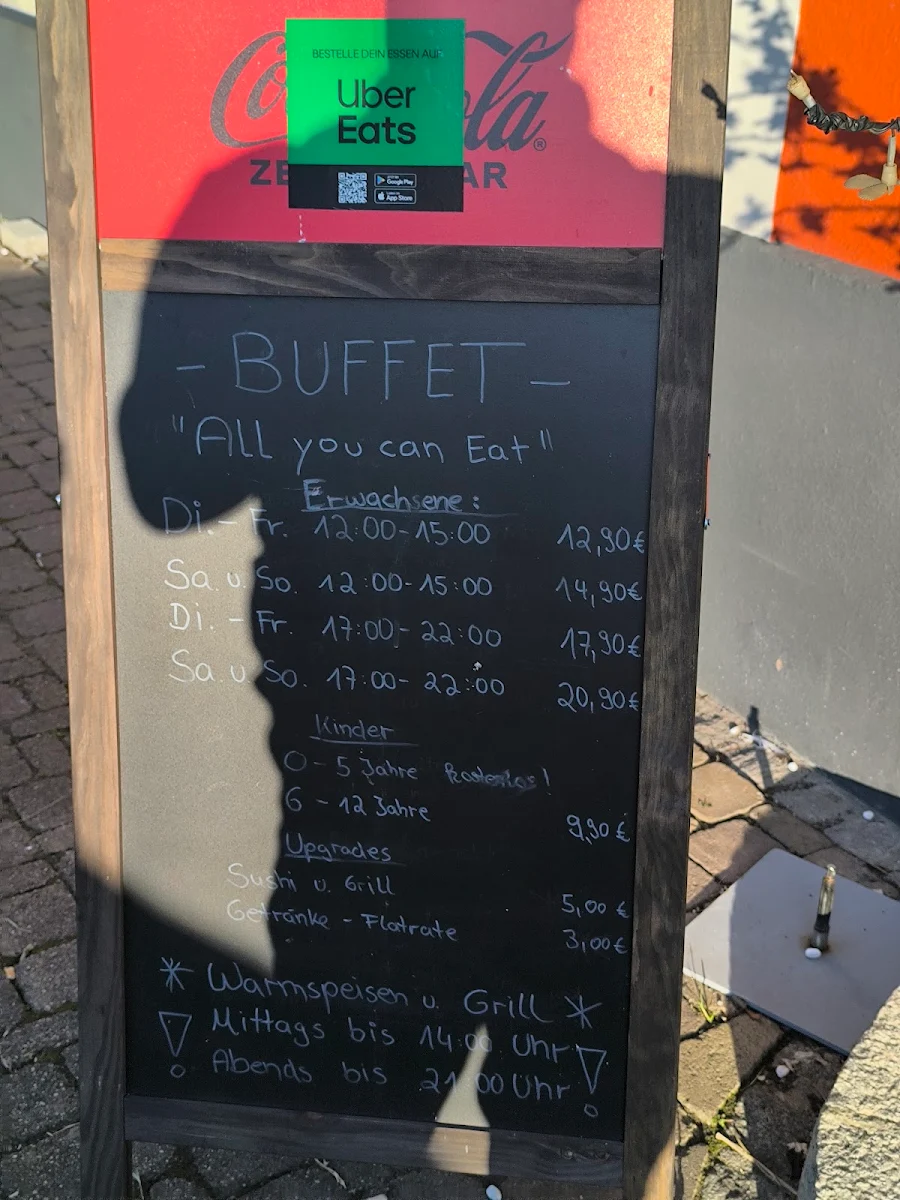 BESTELLE DEIN ESSEN AUF
Uber
Eats
Coca-Cola®
ZERO SUGAR
Google Play
App Store
- BUFFET -
"All you can Eat"
Erwachsene:
Di. - Fr. 12:00-15:00 12,90€
Sa. u. So. 12:00-15:00 14,90€
Di. - Fr. 17:00- 22:00 17,90€
Sa. u. So. 17:00- 22:00 20,90€
Kinder
0 - 5 Jahre kostenlos!
6 - 12 Jahre 9,90€
Upgrades
Sushi u. Grill 5,00€
Getränke - Flatrate 3,00€
* Warmspeisen u. Grill *
! Mittags bis 14:00 Uhr !
Abends bis 21:00 Uhr